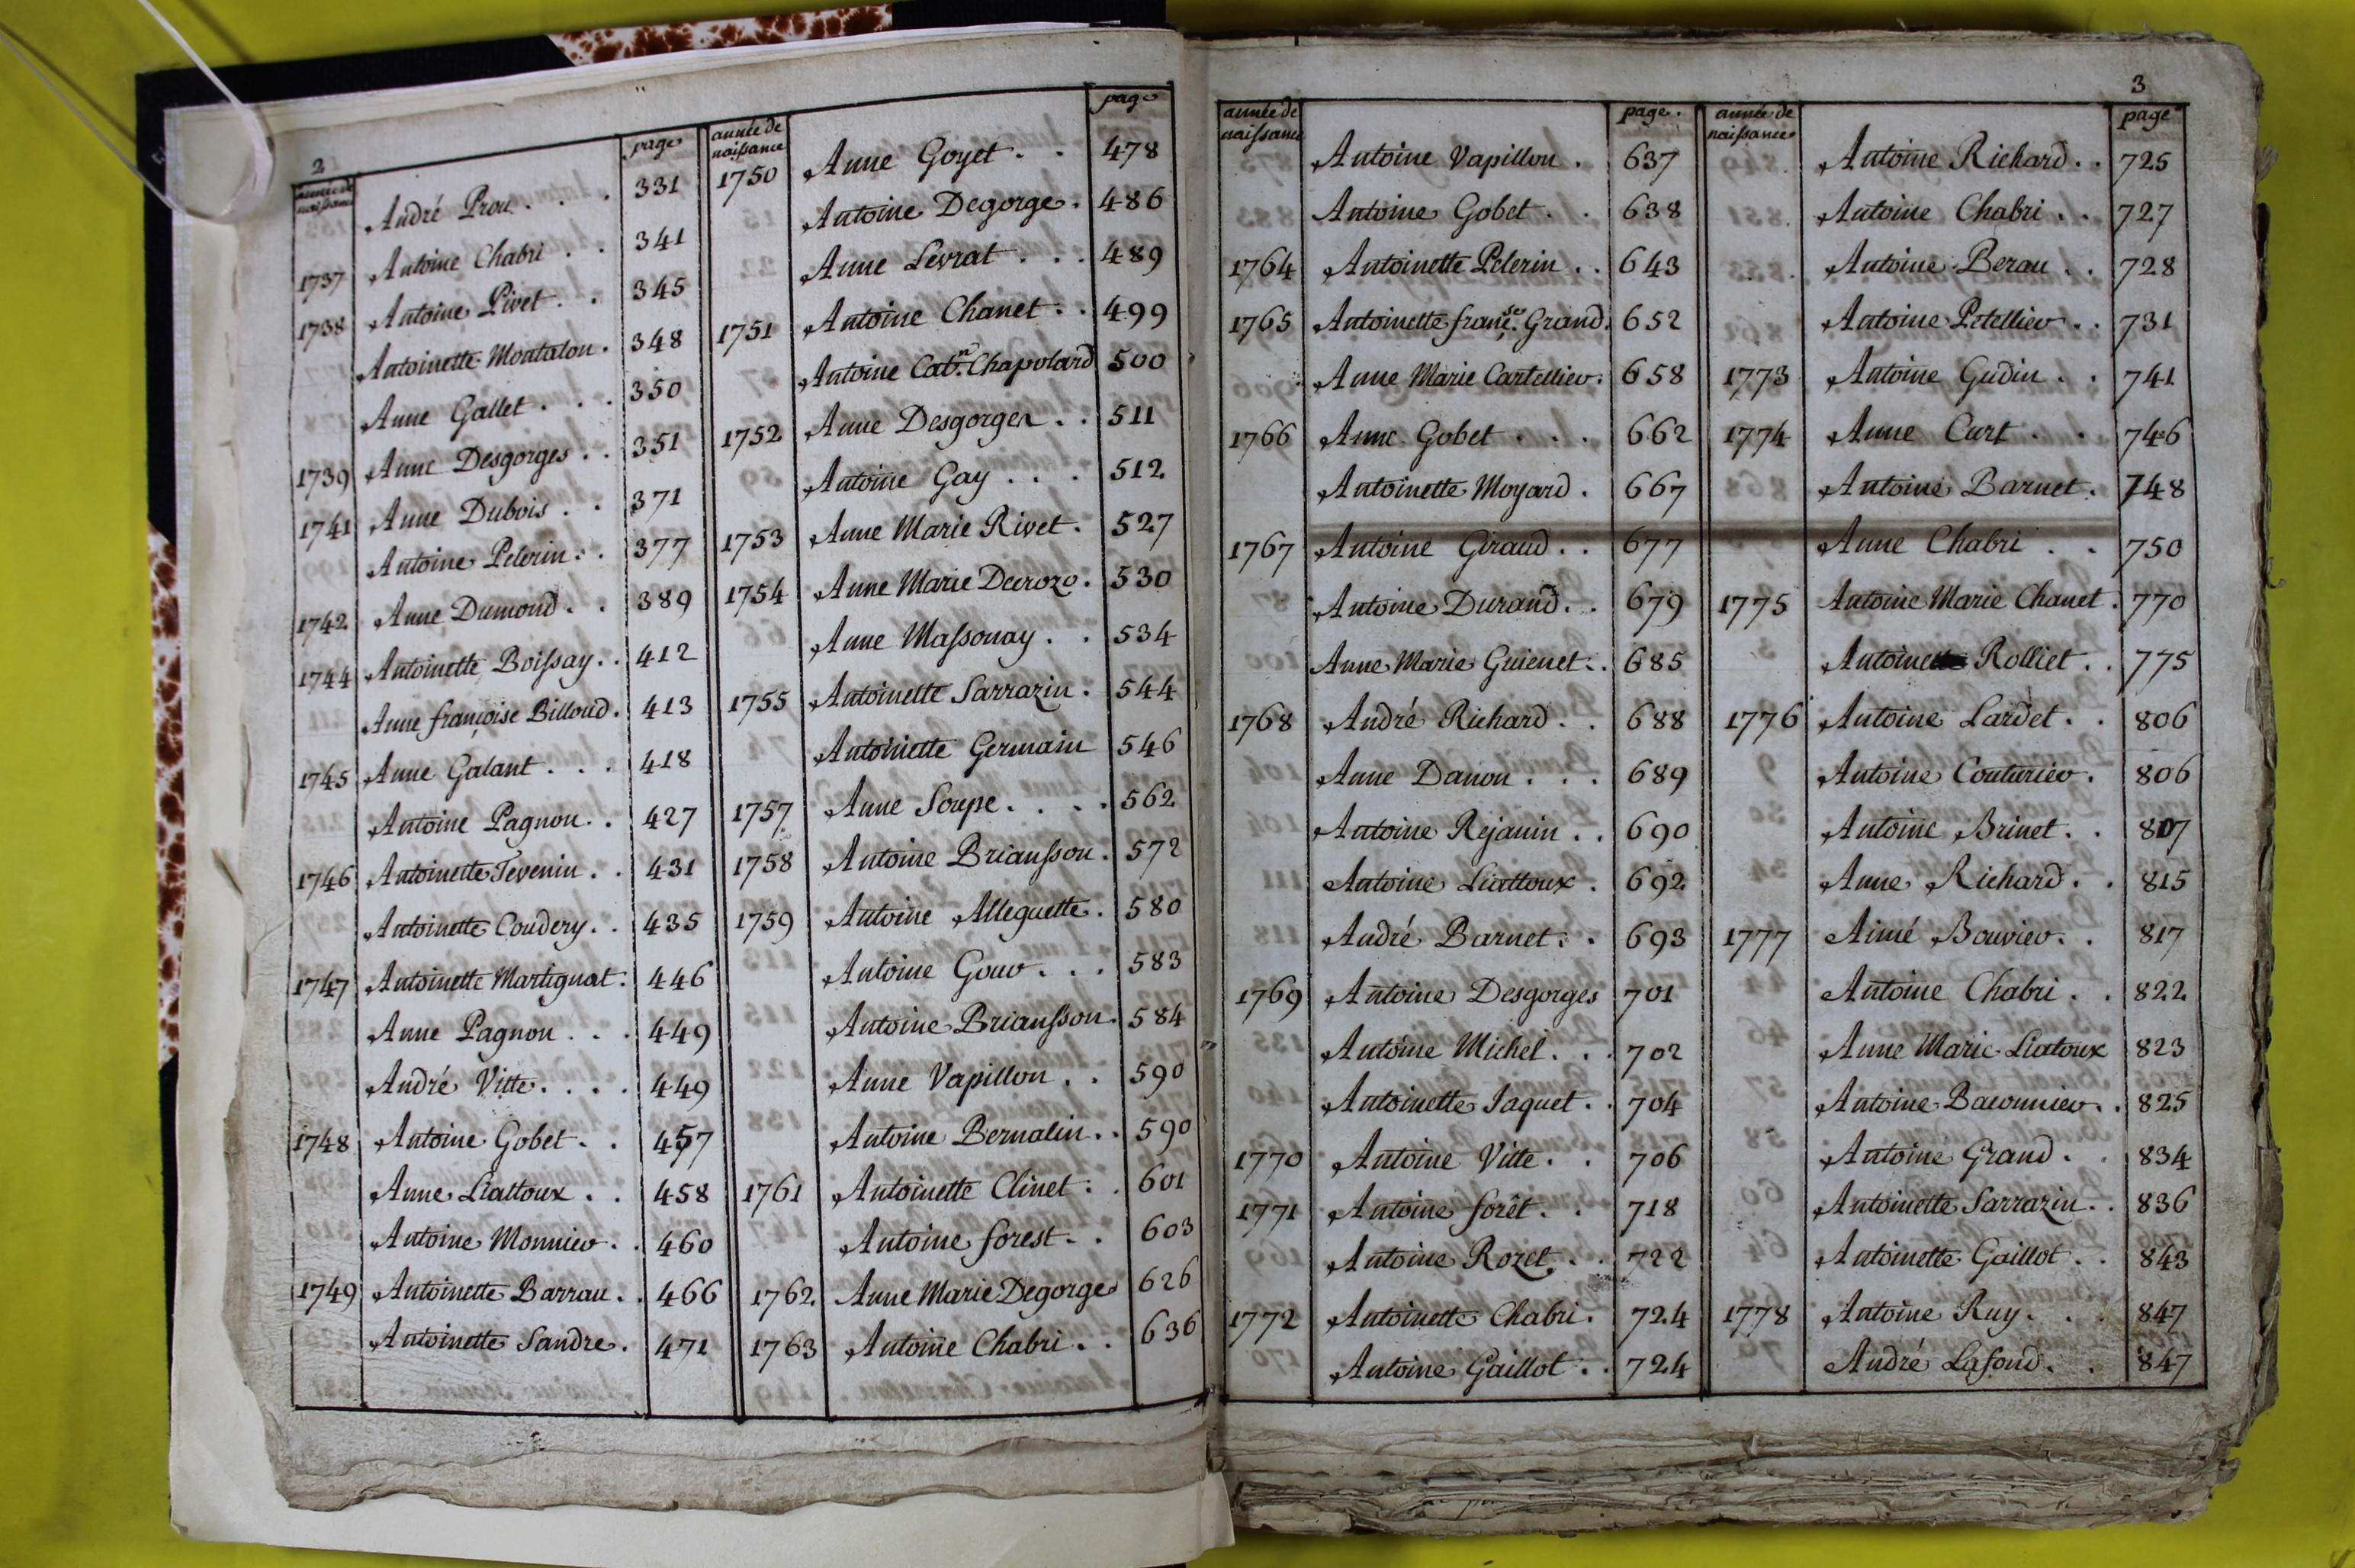 2
année de naissance page
André Prou . . . 331
1737 Antoine Chabri . . 341
1738 Antoine Pivet . . 345
Antoinette Montalon . 348
Anne Gallet . . . 350
1739 Anne Desgorges . . 351
1741 Anne Dubois . . 371
Antoine Pelerin . . 377
1742 Anne Dumond . . 389
1744 Antoinette Boissay . . 412
Anne françoise Billoud . 413
1745 Anne Galant . . . 418
Antoine Pagnon . . 427
1746 Antoinette Tevenin . . 431
Antoinette Coudery . . 435
1747 Antoinette Martignat . 446
Anne Pagnon . . . 449
André Vitte . . . . 449
1748 Antoine Gobet . . 457
Anne Liattoux . . 458
Antoine Monnier . . 460
1749 Antoinette Barrau . . 466
Antoinette Sandre . 471
année de naissance page
1750 Anne Goyet . . 478
Antoine Degorge . 486
Anne Levrat . . . 489
1751 Antoine Chanet . . 499
Antoine Cat.n Chapolard 500
1752 Anne Desgorges . . 511
Antoine Gay . . . 512
1753 Anne Marie Rivet . 527
1754 Anne Marie Decroze . 530
Anne Massonay . . 534
1755 Antoinette Sarrazin . 544
Antoinette Germain 546
1757 Anne Soupe . . . . 562
1758 Antoine Briansson . 572
1759 Antoine Alleguette . 580
Antoine Gour . . . 583
Antoine Briansson . 584
Anne Vapillon . . 590
Antoine Bernalin . . 590
1761 Antoinette Clinet . . 601
Antoine forest . . 603
1762 Anne Marie Degorge 626
1763 Antoine Chabri . . 636
3
année de naissance page .
Antoine Vapillon . 637
Antoine Gobet . . 638
1764 Antoinette Pelerin . . 643
1765 Antoinette franç.se Grand . 652
Anne Marie Cartellier . 658
1766 Anne Gobet . . . 662
Antoinette Moyard . 667
1767 Antoine Giraud . . 677
Antoine Durand . . 679
Anne Marie Guienet . . 685
1768 André Richard . . 688
Anne Danon . . . 689
Antoine Rejanin . . 690
Antoine Liattoux . 692
André Barnet . . 693
1769 Antoine Desgorges 701
Antoine Michel . . . 702
Antoinette Jaquet . . 704
1770 Antoine Vitte . . 706
1771 Antoine forêt . . 718
Antoine Rozet . . 722
1772 Antoinette Chabri . 724
Antoine Gaillot . . 724
année de naissance page
Antoine Richard . . 725
Antoine Chabri . . 727
Antoine Berau . . 728
Antoine Petellier . . 731
1773 Antoine Gudin . . 741
1774 Anne Curt . . 746
Antoine Barnet . 748
Anne Chabri . . 750
1775 Antoine Marie Chanet . 770
Antoine Rolliet . . 775
1776 Antoine Lardet . . 806
Antoine Couturier . 806
Antoine Brinet . . 807
Anne Richard . . 815
1777 Aimé Bouvier . . 817
Antoine Chabri . . 822
Anne Marie Liatoux 823
Antoine Baconnier . . 825
Antoine Grand . . 834
Antoinette Sarrazin . . 836
Antoinette Gaillot . . 843
1778 Antoine Ruy . . . 847
André Lafond . . 847